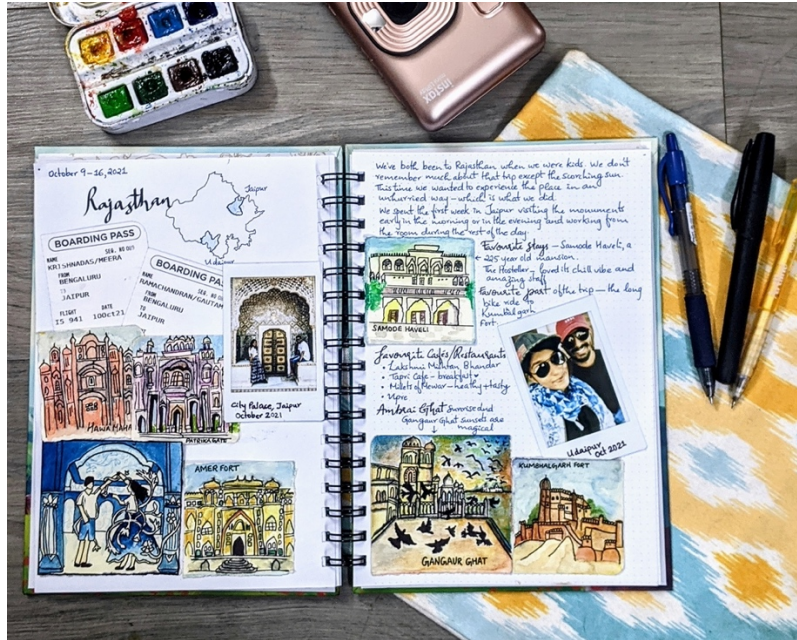 instax
October 9-16, 2021
Rajasthan
Jaipur
Udaipur
BOARDING PASS
SEQ. NO OCT
NAME
KRISHNADAS/MEERA
FROM
BENGALURU
TO
JAIPUR
FLIGHT DATE
IS 941 10Oct21
BOARDING PAS
NAME
RAMACHANDRAN/GAUTAM
FROM
BENGALURU
TO
JAIPUR
City Palace, Jaipur
October 2021
HAWA MAHA
PATRIKA GATE
AMER FORT
We've both been to Rajasthan when we were kids. We don't
remember much about that trip except the scorching sun.
This time we wanted to experience the place in an
unhurried way - which is what we did.
We spent the first week in Jaipur visiting the monuments
early in the morning or in the evening and working from
the room during the rest of the day.
Favourite stays - Samode Haveli, a
225 year old mansion.
The Hosteller - loved its chill vibe and
amazing staff
Favourite part of the trip - the long
bike ride to
Kumbalgarh
Fort
SAMODE HAVELI
Favourite Cafés/Restaurants
• Lakshmi Mishtan Bhandar
• Tapri Cafe - breakfast
• Millets of Mewar - healthy + tasty
• Upre
Ambrai Ghat sunrise and
Gangaur Ghat sunsets are
magical
Udaipur
Oct 2021
GANGAUR GHAT
KUMBHALGARH FORT